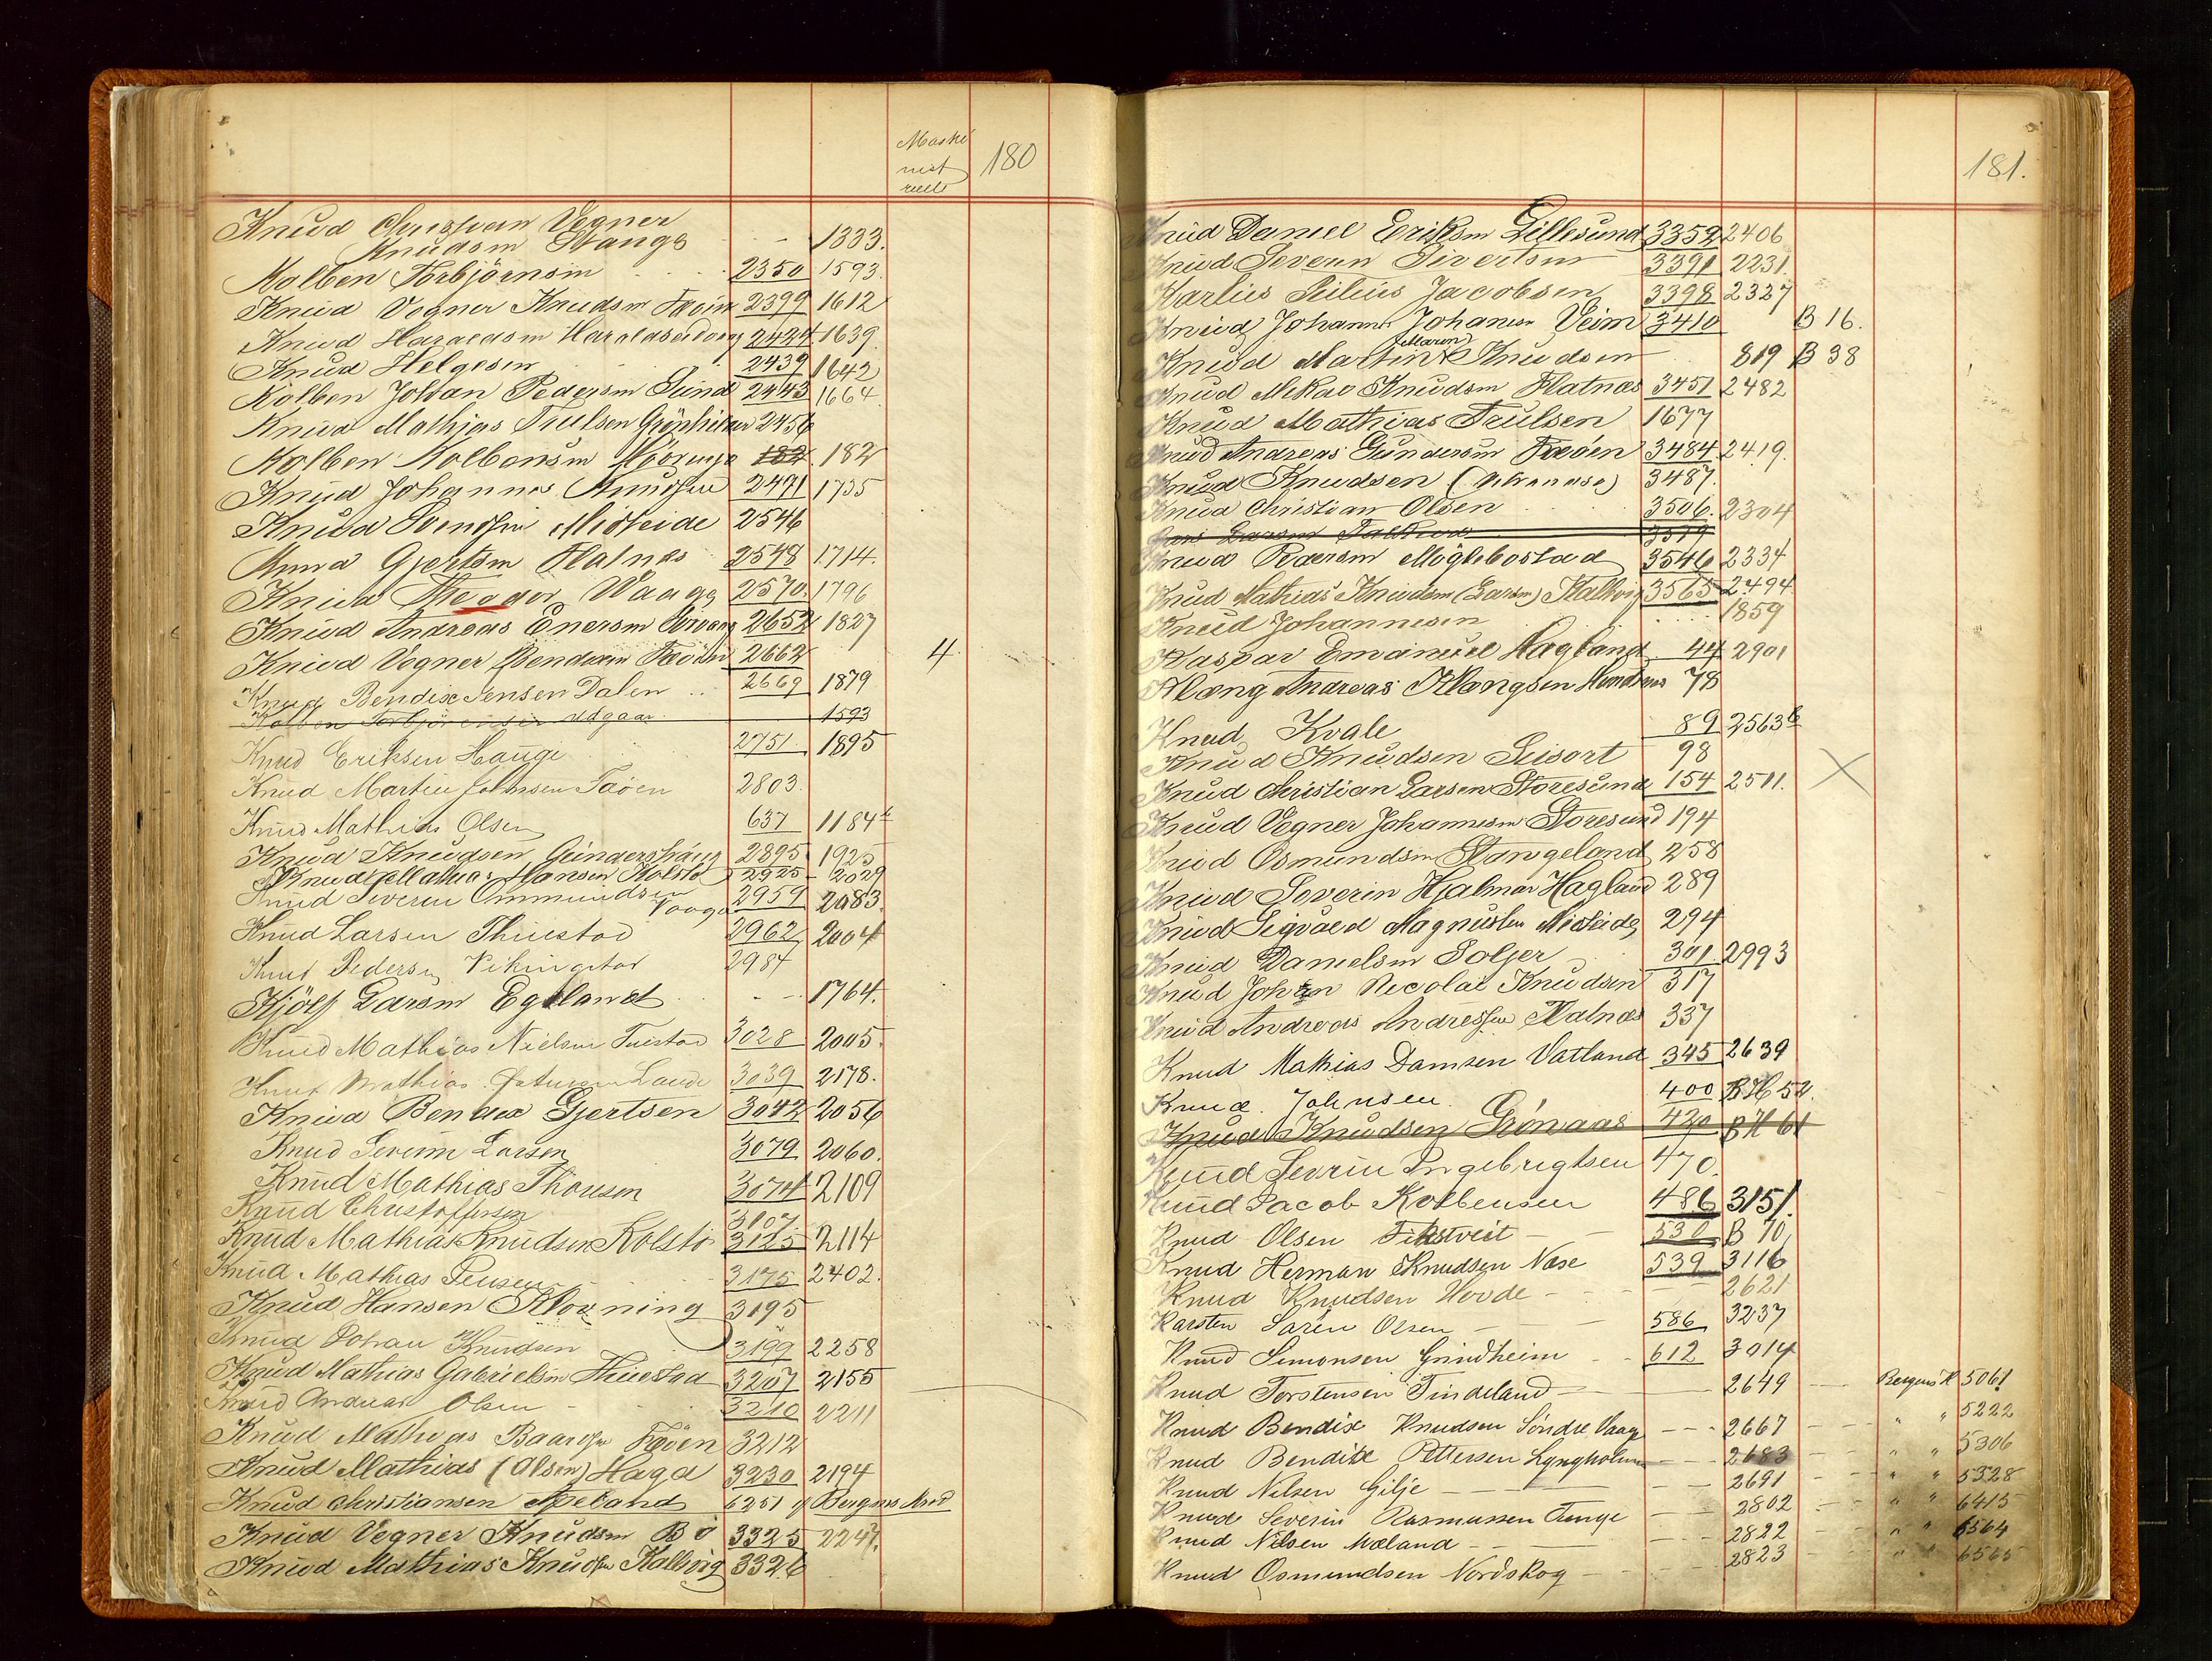 Maski
nist
rulle
180
Knud Christian Vegner
Knudsen Hauge - - 1333.
Kolben Torbjörnsen 2350 1593.
Knud Vogner Knudsm Føöin 2399 1612
Knud Haraldsm Haraldseidvaag 2424 1639
Knud Helgesen 2439 1642
Kolben Johan Pedersm Sund 2443 1664
Knud Mathias Truelsen 2456
Kolben Kolbensm 182 182
Knud Johannes Knudsen 2471 1735
Knud Svendsen Misteide 2546
Knud Gjertsm Halnes 2548 1714.
Knud Waage 2570. 1796
Knud Andreas Enersm 2652 1827
Knud Vogner Bendixen Føöen 2662 4
Knud Bendix Jensen Dalen .. 2669 1879
Kolben Torbjörensen Udgaar 1593
Knud Eriksen Hauge 2751 1895
Knud Martin Johnsen Føöen 2803.
Knud Mathias Olsen 637 1184
Knud Knudsen Gündershaug 2895 1925
Knud Mathias Hansen Kolstø 2925 - 2029
Knud Severin Ommundsen Vaage 2959 2083.
Knud Larsen Thuestad 2962 2004
Knut Pedersen Vikingstad 2984
Kjölf Larsm Egeland - - 1764.
Knud Mathias Nielsen Tuestad 3028 2005.
Knut Mathias Lande 3039 2178.
Knud Bendix Gjertsen 3042 2056
Knud Severin Larsen 3079 2060.
Knud Mathias Thorsen 3074 2109
Knud Christoffersen 3107
Knud Mathias Knudsen Kolstø 3125 2114
Knud Mathias Jensen 3175 2402.
Knud Hansen Klovning 3195
Knud Johan Knudsen 3199 2258
Knud Mathias Gabrielsm Thuestad 3207 2155
Knud Andreas Olsen 3210 2211
Knud Mathias Baardsen Føöen 3212
Knud Mathias (Olsen) Haga 3230 2194
Knud Christiansen Apeland 6251 Bergens Nord
Knud Vegner Knudsm Bö 3325 2247.
Knud Mathias Knudsen Kallevig 3326
181.
Knud Daniel Eriksm Lillesund 3352 2406
Knud Severin Sivertsm 3391 2231.
Karlius Julius Jacobsen 3398 2327
Knud Johannes Johansen Veim 3410 B 16.
Knud Martin (Maron) Knudsen 819 B 38
Knud Mikal Knudsm Hatnæs 3451 2482
Knud Mathias Trulsen 1677
Knud Andreas Gundersm Føöen 3484 2419.
Knud Knudsen 3487.
Knud Christian Olsen 3506. 2304
Lars Larsm 3519
Knud Pedersm Møglebostad 3546 2334
Knud Mathias Knudsm (Larsm) Kallevig 3565 2494
Knud Johannesen 1859
Kaspar Emanuel Hagland 44 2901
Klæng Andreas Klængsen 78
Knud Kvale 89 2563 b
Knud Knudsen 98
Knud Christian Larsen Storesund 154 2511.
Knud Vegner Johannesm Storesund 194
Knud Osmundsm Stangeland 258
Knud Severin Hjalmar Hagland 289
Knud Sigvald Magnussen Misteide 294
Knud Danielsm 301. 2993
Knud Johan Nicolai Knudsen 317
Knud Andreas Andressen Hatnæs 337
Knud Mathias Damsen Vatland 345 2639
Knud. Johnsen. 400 B H 52.
Knud Knudsen Grönaas 420 B H 61
Knud Sevrin Ingebrigtsen 470.
Knud Jacob Kolbensen 486 3151.
Knud Olsen Fikstveit - - 530 B 70,
Knud Herman Knudsen Næse 539 3116
Knud Knudsen Hovde - - 2621
Karsten Søren Olsen - - 586 3237
Knud Simonsen Grindheim - 612 3014
Knud Torstensen Tindeland - - 2649 - Bergens H 5061
Knud Bendix Knudsen Söndre Vaage - - 2667 - " " 5222
Knud Bendix Pettersen Lyngholmen - - 2683 - " " 5306
Knud Nilsen Gilje - - 2691 - " " 5328
Knud Severin Rasmussen Tunge - - 2802 - " " 6415
Knud Nilsen Mæland - - 2822 - " " 6564
Knud Osmundsen Nordskog - - 2823 - " " 6565